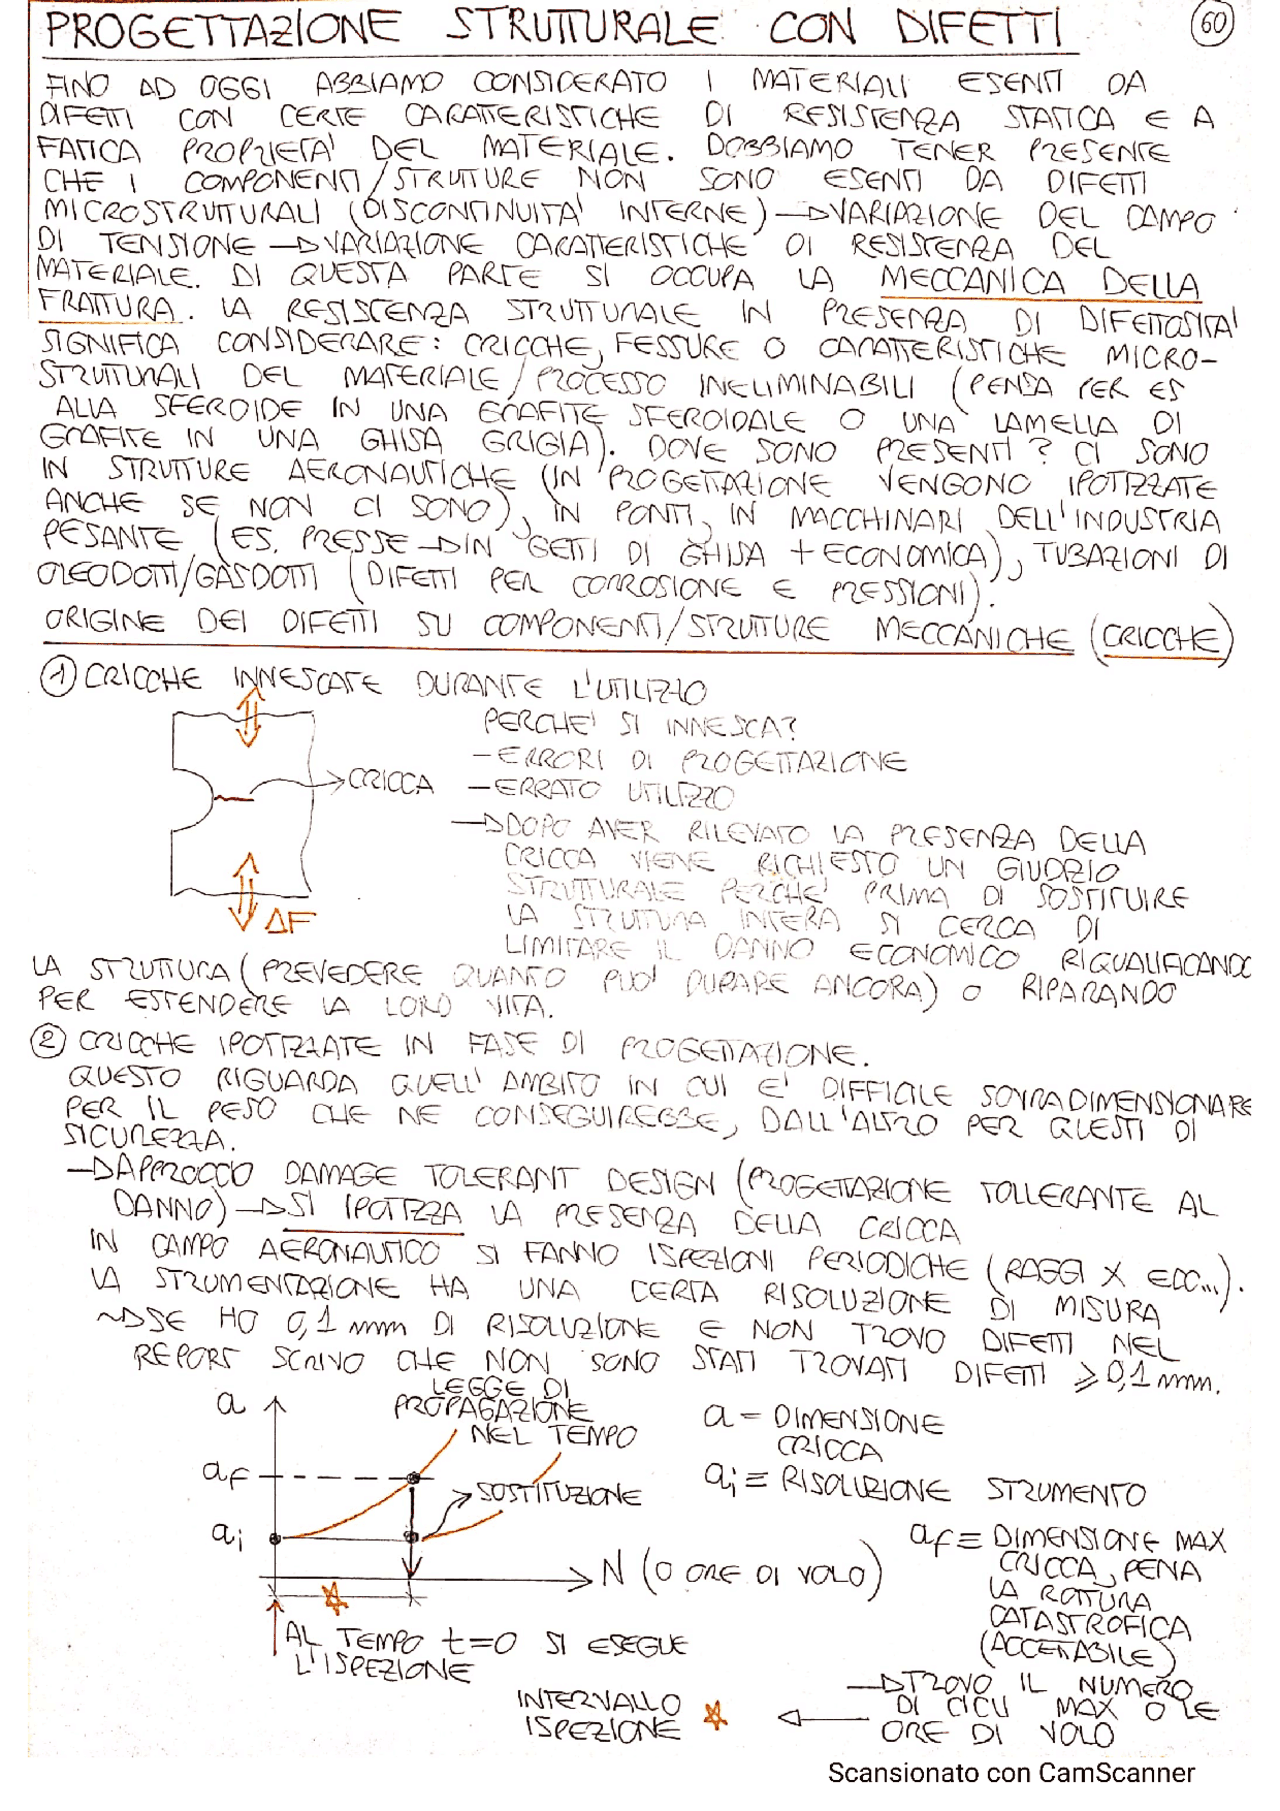 PROGETTAZIONE STRUTTURALE CON DIFETTI
60
FINO AD OGGI ABBIAMO CONSIDERATO I MATERIALI ESENTI DA
DIFETTI CON CERTE CARATTERISTICHE DI RESISTENZA STATICA E A
FATICA PROPRIETA' DEL MATERIALE. DOBBIAMO TENER PRESENTE
CHE I COMPONENTI/STRUTTURE NON SONO ESENTI DA DIFETTI
MICROSTRUTTURALI (DISCONTINUITA' INTERNE) → VARIAZIONE DEL CAMPO
DI TENSIONE → VARIAZIONE CARATTERISTICHE DI RESISTENZA DEL
MATERIALE. DI QUESTA PARTE SI OCCUPA LA MECCANICA DELLA
FRATTURA. LA RESISTENZA STRUTTURALE IN PRESENZA DI DIFETTOSITA'
SIGNIFICA CONSIDERARE: CRICCHE, FESSURE O CARATTERISTICHE MICRO-
STRUTTURALI DEL MATERIALE/PROCESSO INELIMINABILI (PENSA PER ES
ALLA SFEROIDE IN UNA GRAFITE SFEROIDALE O UNA LAMELLA DI
GRAFITE IN UNA GHISA GRIGIA). DOVE SONO PRESENTI? CI SONO
IN STRUTTURE AERONAUTICHE (IN PROGETTAZIONE VENGONO IPOTIZZATE
ANCHE SE NON CI SONO), IN PONTI, IN MACCHINARI DELL'INDUSTRIA
PESANTE (ES. PRESSE → IN GETTI DI GHISA + ECONOMICA), TUBAZIONI DI
OLEODOTTI/GASDOTTI (DIFETTI PER CORROSIONE E PRESSIONI).
ORIGINE DEI DIFETTI SU COMPONENTI/STRUTTURE MECCANICHE (CRICCHE)
① CRICCHE INNESCATE DURANTE L'UTILIZZO
PERCHE' SI INNESCA?
- ERRORI DI PROGETTAZIONE
→ CRICCA
- ERRATO UTILIZZO
→ DOPO AVER RILEVATO LA PRESENZA DELLA
CRICCA VIENE RICHIESTO UN GIUDIZIO
STRUTTURALE PERCHE' PRIMA DI SOSTITUIRE
LA STRUTTURA INTERA SI CERCA DI
ΔF
LIMITARE IL DANNO ECONOMICO RIQUALIFICANDO
LA STRUTTURA (PREVEDERE QUANTO PUO' DURARE ANCORA) O RIPARANDO
PER ESTENDERE LA LORO VITA.
② CRICCHE IPOTIZZATE IN FASE DI PROGETTAZIONE.
QUESTO RIGUARDA QUELL'AMBITO IN CUI E' DIFFICILE SOVRADIMENSIONARE
PER IL PESO CHE NE CONSEGUIREBBE, DALL'ALTRO PER QUESTI DI
SICUREZZA.
→ APPROCCIO DAMAGE TOLERANT DESIGN (PROGETTAZIONE TOLLERANTE AL
DANNO) → SI IPOTIZZA LA PRESENZA DELLA CRICCA
IN CAMPO AERONAUTICO SI FANNO ISPEZIONI PERIODICHE (RAGGI X ECC...).
LA STRUMENTAZIONE HA UNA CERTA RISOLUZIONE DI MISURA
→ SE HO 0,1 mm DI RISOLUZIONE E NON TROVO DIFETTI NEL
REPORT SCRIVO CHE NON SONO STATI TROVATI DIFETTI ⩾ 0,1 mm.
a
LEGGE DI
PROPAGAZIONE
NEL TEMPO
a = DIMENSIONE
CRICCA
af
→ SOSTITUZIONE
ai ≡ RISOLUZIONE STRUMENTO
ai
af ≡ DIMENSIONE MAX
CRICCA, PENA
LA ROTTURA
CATASTROFICA
(ACCETTABILE)
N (O ORE DI VOLO)
☆
AL TEMPO t=0 SI ESEGUE
L'ISPEZIONE
→ TROVO IL NUMERO
DI CICLI MAX O LE
ORE DI VOLO
INTERVALLO
ISPEZIONE ☆ ←
Scansionato con CamScanner